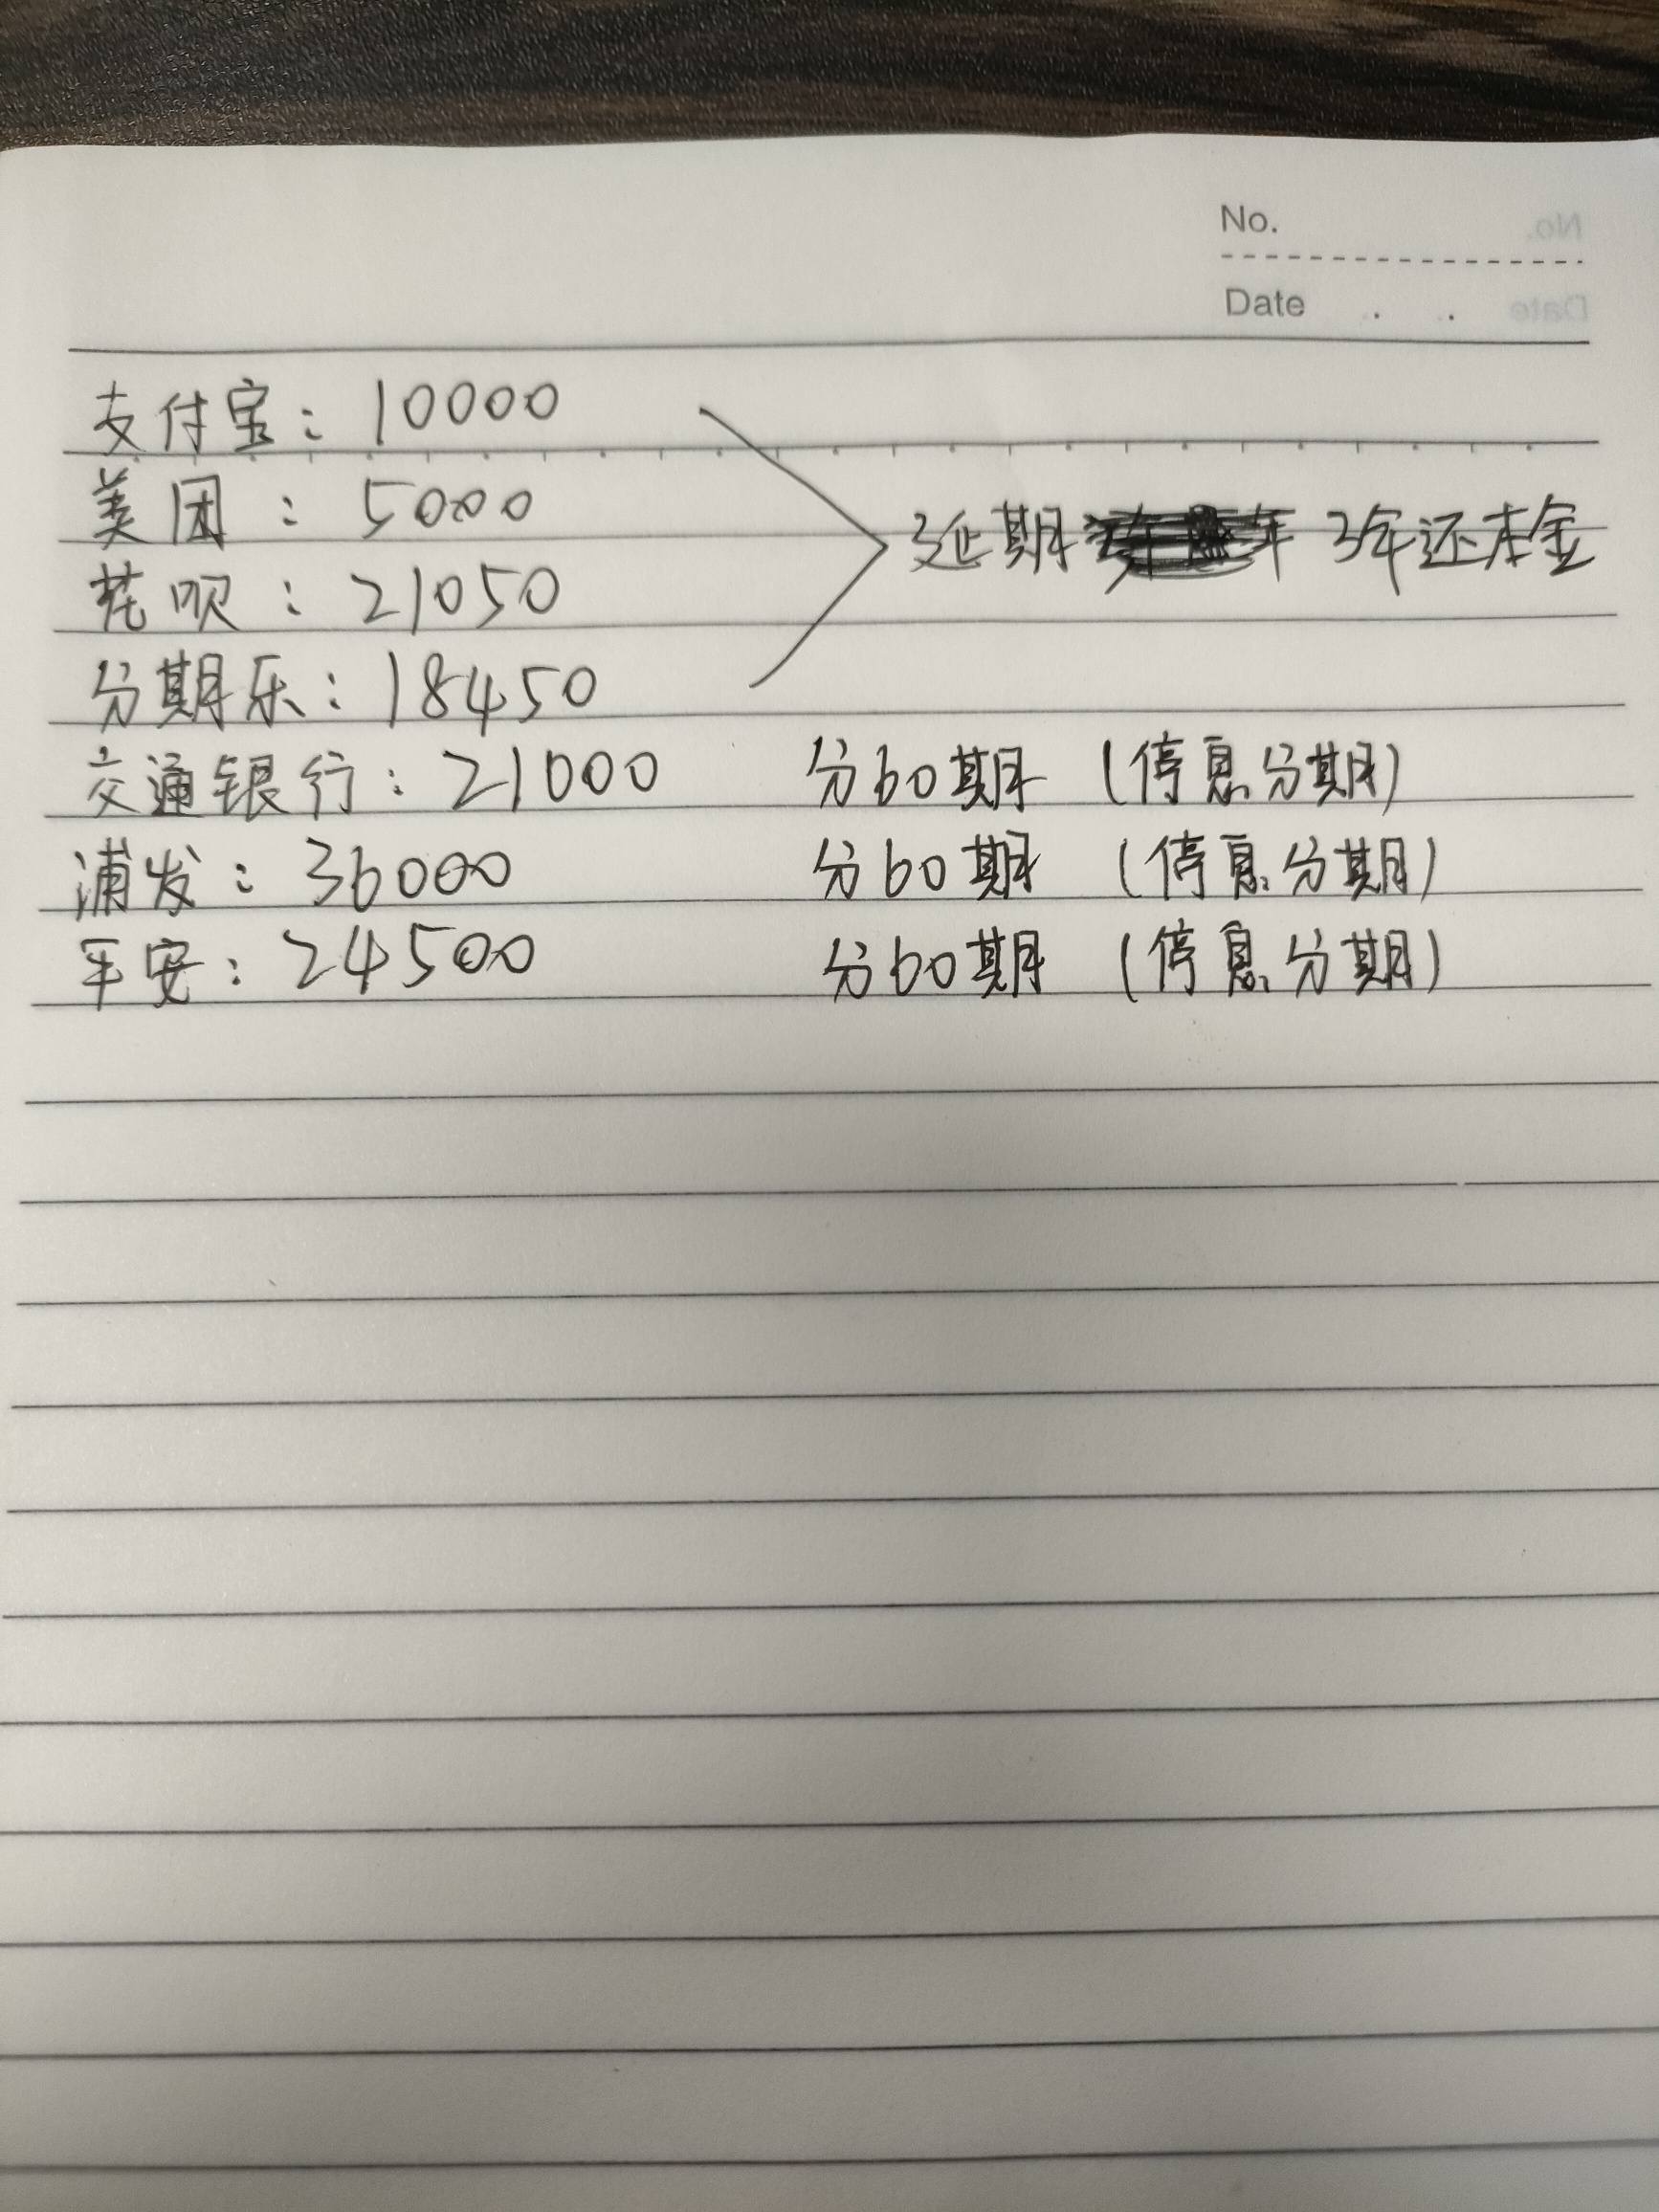 No.
Date . .
支付宝：10000
美团：5000
延期 年 3年还本金
花呗：21050
分期乐：18450
交通银行：21000 分60期 （停息分期）
浦发：36000 分60期 （停息分期）
平安：24500 分60期 （停息分期）